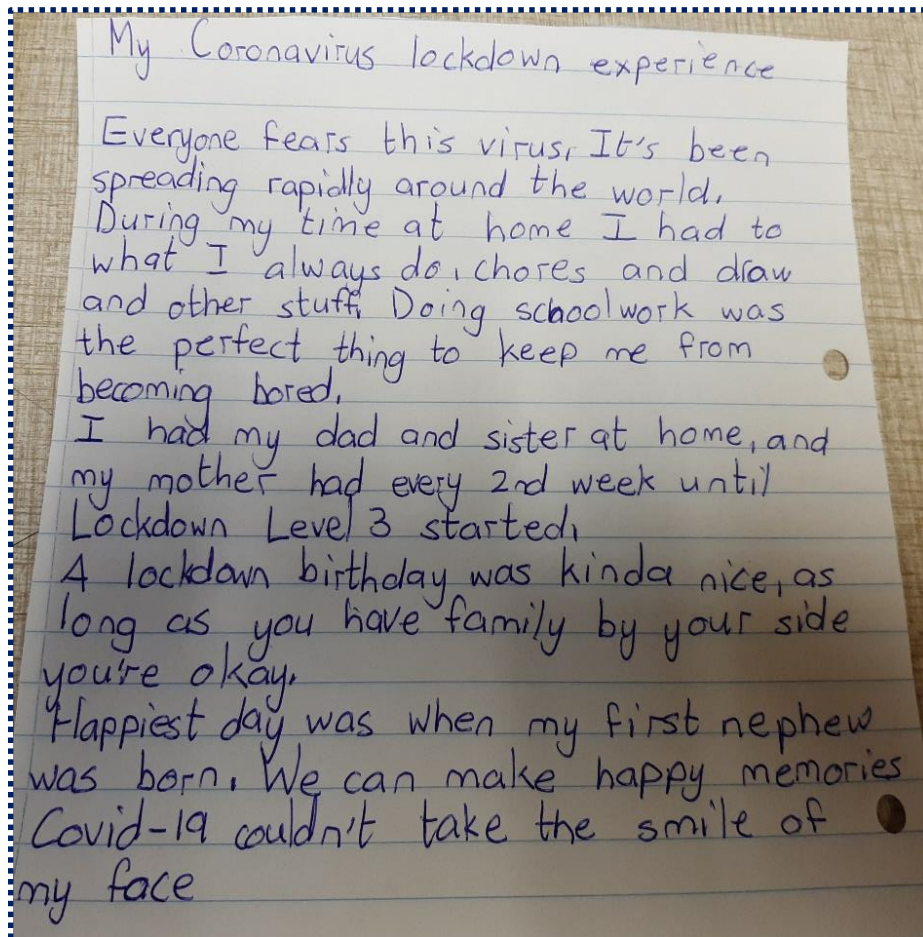 My Coronavirus lockdown experience
Everyone fears this virus, It's been
spreading rapidly around the world.
During my time at home I had to
what I always do, chores and draw
and other stuff. Doing schoolwork was
the perfect thing to keep me from
becoming bored.
I had my dad and sister at home, and
my mother had every 2nd week until
Lockdown Level 3 started,
A lockdown birthday was kinda nice, as
long as you have family by your side
you're okay.
Happiest day was when my first nephew
was born. We can make happy memories
Covid-19 couldn't take the smile of
my face